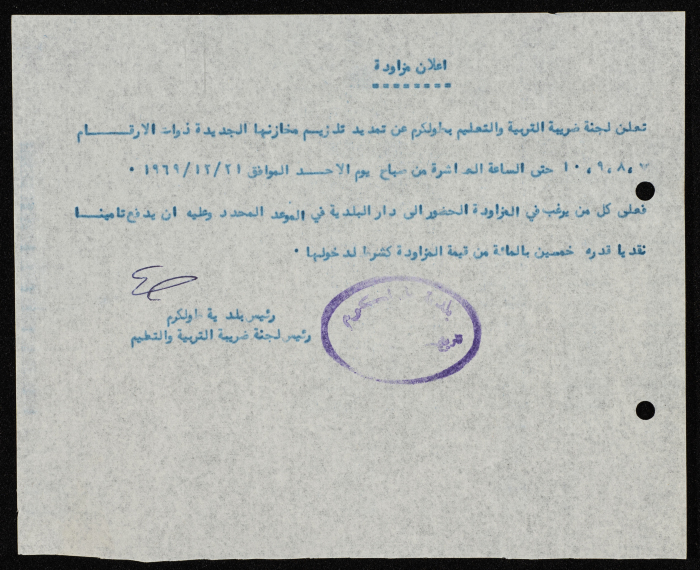 اعلان مزاودة
تعلن لجنة ضريبة التربية والتعليم بطولكرم عن تمديد تلزيم مخازنها الجديدة ذوات الارقام
٧، ٨، ٩، ١٠ حتى الساعة العاشرة من صباح يوم الاحد الموافق ١٩٦٩/١٢/٢١ .
فعلى كل من يرغب في المزاودة الحضور الى دار البلدية في الموعد المحدد وعليه ان يدفع تامينا
نقديا قدره خمسين بالمائة من قيمة المزاودة كشرط لدخولها .
رئيس بلدية طولكرم
رئيس لجنة ضريبة التربية والتعليم
بلدية طولكرم